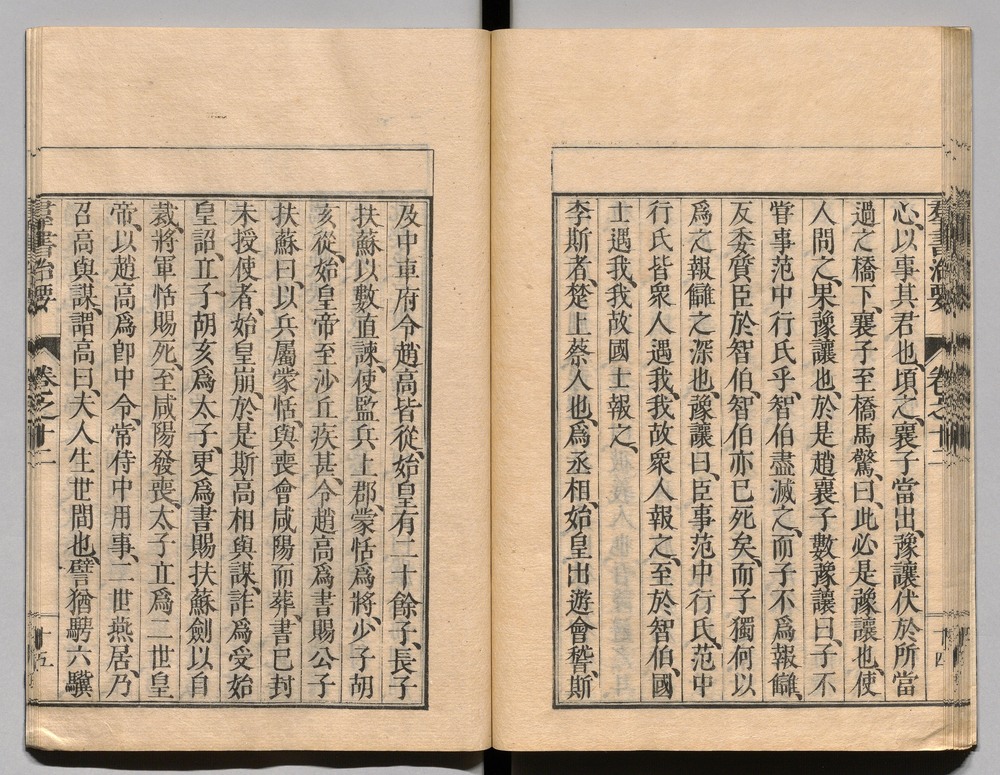 羣書治要　卷之十二　十四
心、以事其君也、頃之、襄子當出、豫讓伏於所當
過之橋下、襄子至橋馬驚、曰、此必是豫讓也、使
人問之、果豫讓也、於是趙襄子數豫讓曰、子不
甞事范中行氏乎、智伯盡滅之、而子不爲報讎、
反委質臣於智伯、智伯亦已死矣、而子獨何以
爲之報讎之深也、豫讓曰、臣事范中行氏、范中
行氏皆衆人遇我、我故衆人報之、至於智伯、國
士遇我、我故國士報之、
李斯者、楚上蔡人也、爲丞相、始皇出遊會稽、斯
及中車府令趙高皆從、始皇有二十餘子、長子
扶蘇以數直諫、使監兵上郡、蒙恬爲將、少子胡
亥從、始皇帝至沙丘疾甚、令趙高爲書賜公子
扶蘇曰、以兵屬蒙恬、與喪會咸陽而葬、書已封
未授使者、始皇崩、於是斯高相與謀、詐爲受始
皇詔、立子胡亥爲太子、更爲書賜扶蘇劍以自
裁、將軍恬賜死、至咸陽發喪、太子立爲二世皇
帝、以趙高爲郎中令、常侍中用事、二世燕居、乃
召高與謀、謂高曰、夫人生世間也、譬猶騁六驥
羣書治要　卷之十二　十五